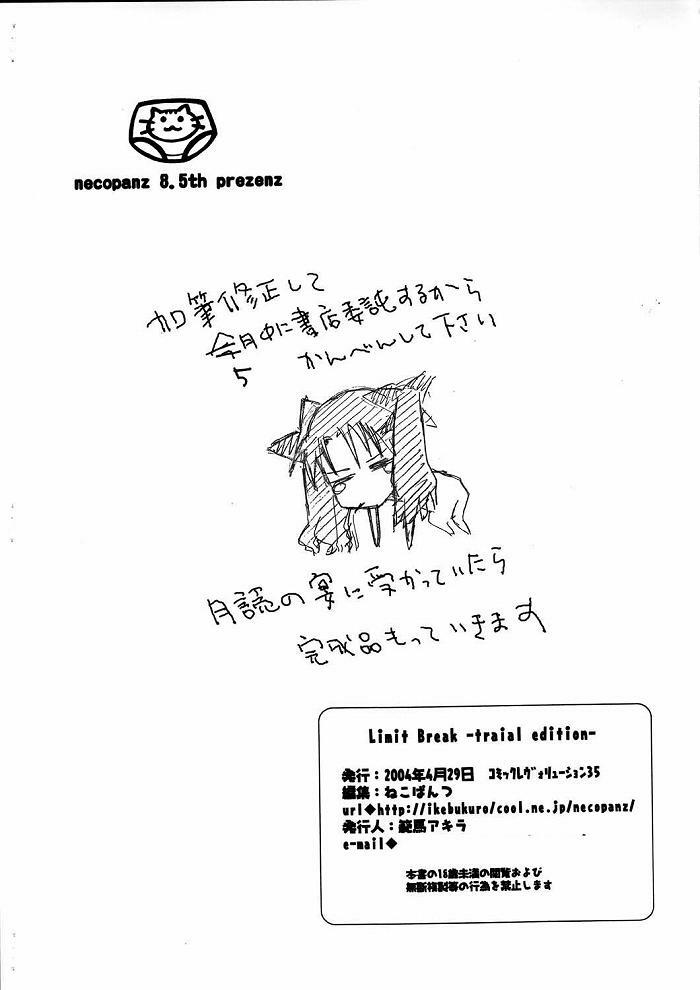 necopanz 8.5th prezenz
加筆修正して
今月中に書店委託するから
5
かんべんして下さい
月認の宴に受かっていたら
完成品もっていきます
Limit Break -traial edition-
発行:2004年4月29日 コミックレヴォリューション35
編集:ねこぱんつ
url◆http://ikebukuro/cool.ne.jp/necopanz/
発行人:範馬アキラ
e-mail◆
本書の18歳未満の閲覧および
無断複製等の行為を禁止します